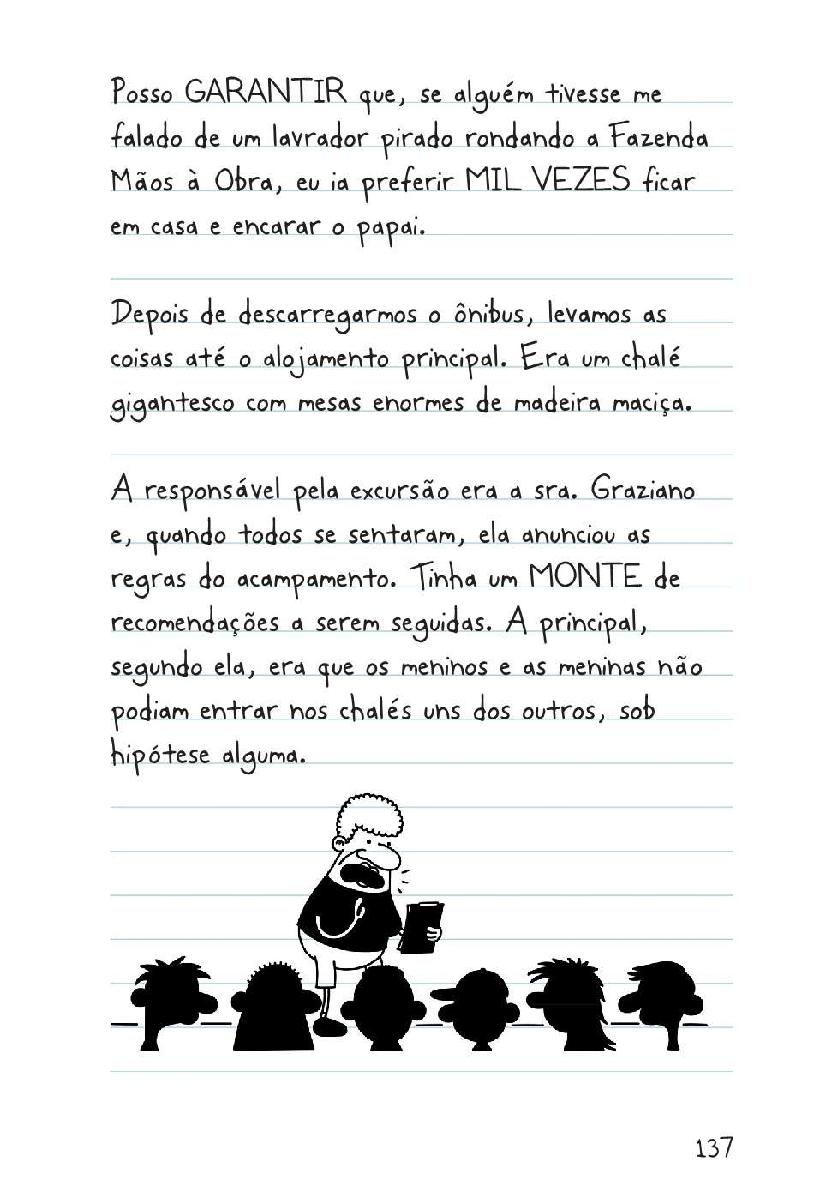 Posso GARANTIR que, se alguém tivesse me
falado de um lavrador pirado rondando a Fazenda
Mãos à Obra, eu ia preferir MIL VEZES ficar
em casa e encarar o papai.
Depois de descarregarmos o ônibus, levamos as
coisas até o alojamento principal. Era um chalé
gigantesco com mesas enormes de madeira maciça.
A responsável pela excursão era a sra. Graziano
e, quando todos se sentaram, ela anunciou as
regras do acampamento. Tinha um MONTE de
recomendações a serem seguidas. A principal,
segundo ela, era que os meninos e as meninas não
podiam entrar nos chalés uns dos outros, sob
hipótese alguma.
137